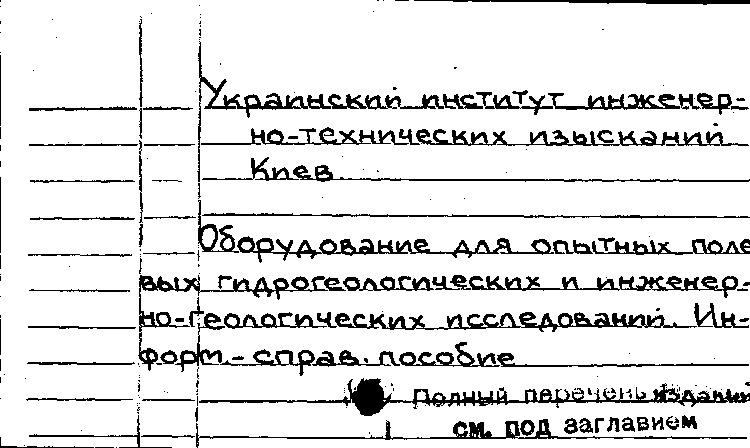 Украинский институт инженер-
но-технических изысканий
Киев
Оборудование для опытных поле
вых гидрогеологических и инженер-
но-геологических исследований. Ин-
форм.-справ. пособие
Полный перечень изданий
см. под заглавием